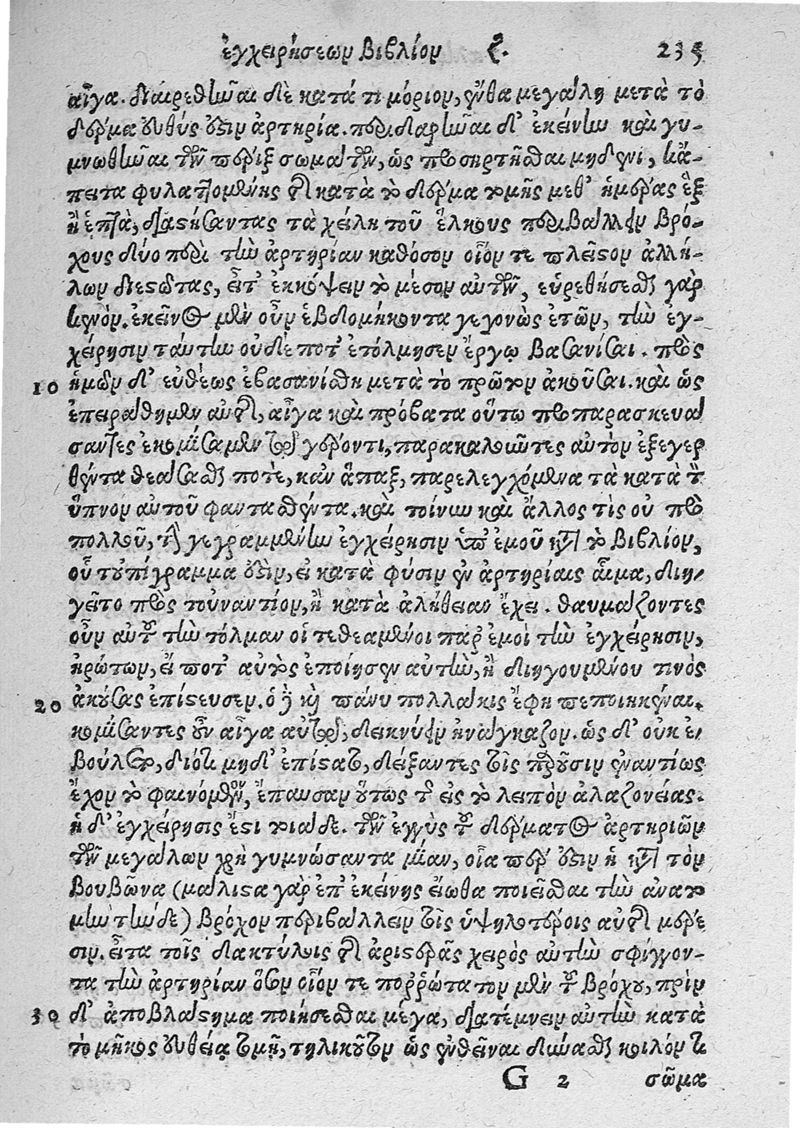 ἐγχειρήσεων βιβλίον ζ. 235
αἶγα. διαιρεθῆναι δὲ κατά τι μόριον, ἔνθα μεγάλη μετὰ τὸ
δέρμα εὐθύς ἐστιν ἀρτηρία. περιδαρῆναι δ' ἐκείνην καὶ γυ-
μνωθῆναι τῶν πέριξ σωμάτων, ὡς προσηρτῆσθαι μηδενί, κἄ-
πειτα φυλαττομένης τῆς κατὰ τὸ δέρμα τομῆς μεθ' ἡμέρας ἓξ
ἢ ἑπτὰ, διαστήσαντας τὰ χείλη τοῦ ἕλκους περιβαλλεῖν βρό-
χους δύο περὶ τὴν ἀρτηρίαν καθόσον οἷόν τε πλεῖστον ἀλλή-
λων διεστῶτας, εἶτ' ἐκκόψειν τὸ μέσον αὐτῶν, εὑρεθήσεσθαι γὰρ
κενόν. ἐκεῖνος μὲν οὖν ἑβδομήκοντα γεγονὼς ἐτῶν, τὴν ἐγ-
χείρησιν ταύτην οὐδέποτ' ἐτόλμησεν ἔργῳ βασανίσαι. πρὸς
10 ἡμῶν δ' εὐθέως ἐβασανίσθη μετὰ τὸ πρῶτον ἀκοῦσαι. καὶ ὡς
ἐπειράθημεν αὐτῆς, αἶγα καὶ πρόβατα οὕτω προπαρασκευά
σαντες ἐκομίσαμεν τῷ γέροντι, παρακαλοῦντες αὐτὸν ἐξεγερ
θέντα θεάσασθαί ποτε, κἂν ἅπαξ, παρελεγχόμενα τὰ κατὰ τὸν
ὕπνον αὐτοῦ φαντασθέντα. καὶ τοίνυν καὶ ἄλλος τὶς οὐ πρὸ
πολλοῦ, τὴν γεγραμμένην ἐγχείρησιν ὑπ' ἐμοῦ κατὰ τὸ βιβλίον,
οὗ τοὐπίγραμμα ἐστὶν, εἰ κατὰ φύσιν ἐν ἀρτηρίαις αἷμα, διη-
γεῖτο πρὸς τοὐναντίον, ἢ κατὰ ἀλήθειαν ἔχει. θαυμάζοντες
οὖν αὐτοῦ τὴν τόλμαν οἱ τεθεαμένοι παρ' ἐμοὶ τὴν ἐγχείρησιν,
ἠρώτων, εἴ ποτ' αὐτὸς ἐποίησεν αὐτὴν, ἢ διηγουμένου τινὸς
20 ἀκούσας ἐπίστευσεν. ὁ δὲ καὶ πάνυ πολλάκις ἔφη πεποιηκέναι.
κομίσαντες οὖν αἶγα αὐτῷ, δεικνύειν ἠνάγκαζον. ὡς δ' οὐκ ἐ-
βούλετο, διότι μηδ' ἐπίστατο, δείξαντες τοῖς παροῦσιν ἐναντίως
ἔχον τὸ φαινόμενον, ἔπαυσαν οὕτως τῆς εἰς τὸ λειπὸν ἀλαζονείας.
ἡ δ' ἐγχείρησις ἔστι τοιάδε. τῶν ἐγγὺς τοῦ δέρματος ἀρτηριῶν
τῶν μεγάλων χρὴ γυμνώσαντα μίαν, οἵα πέρ ἐστιν ἡ κατὰ τὸν
βουβῶνα (μάλιστα γὰρ ἐπ' ἐκείνης εἴωθα ποιεῖσθαι τὴν ἀνατο
μὴν τήνδε) βρόχον περιβάλλειν τοῖς ὑψηλοτέροις αὐτῆς μέρε
σιν. εἶτα τοῖς δακτύλοις τῆς ἀριστερᾶς χειρὸς αὐτὴν σφίγγον-
τα τὴν ἀρτηρίαν ὅσον οἷόν τε ποῤῥώτατον μὲν τοῦ βρόχου, πρὶν
30 δ' ἀποβλάστημα ποιήσεσθαι μέγα, διατέμνειν αὐτὴν κατὰ
τὸ μῆκος εὐθείᾳ τομῇ, τηλικοῦτον ὡς ἐνθεῖναι δύνασθαι κοῖλόν τι
G 2 σῶμα